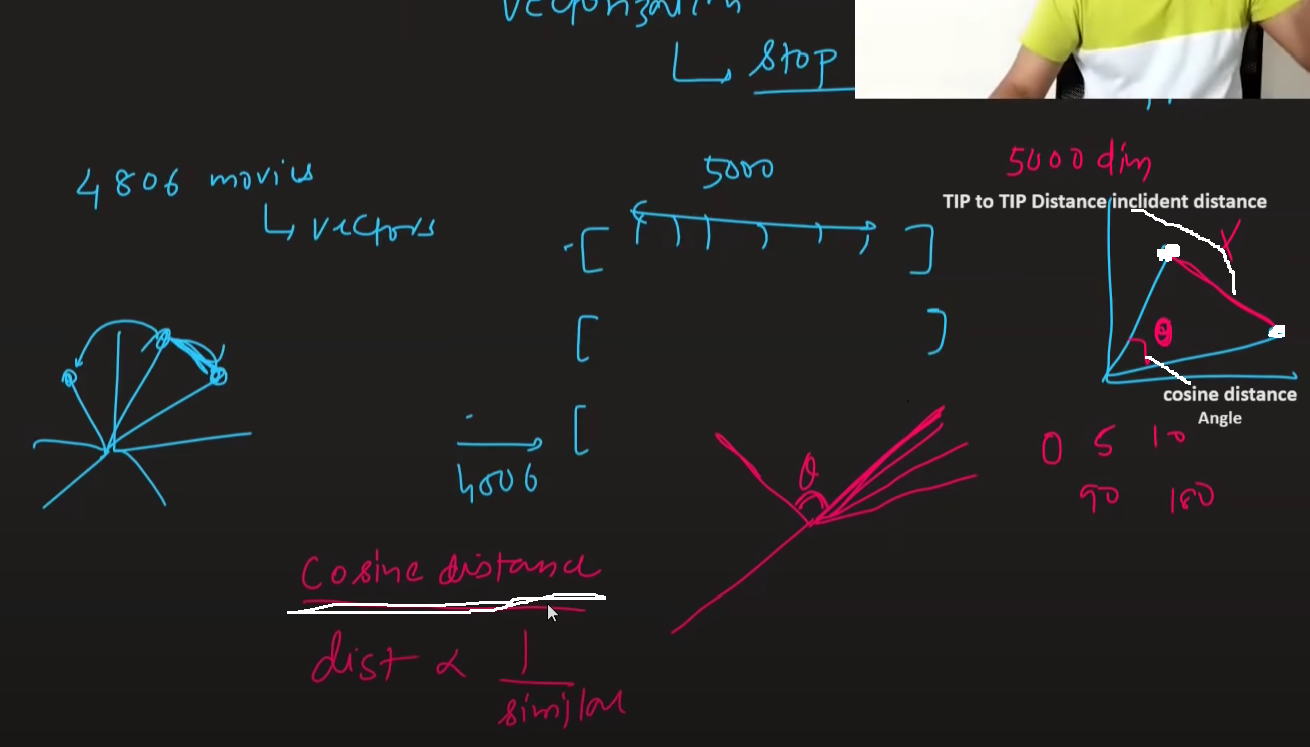 vectorization
stop
4806 movies
vectors
5000
5000 dim
TIP to TIP Distance/inclident distance
θ
cosine distance
Angle
0 5 10
90 180
θ
Cosine distance
dist ∝ 1
similar